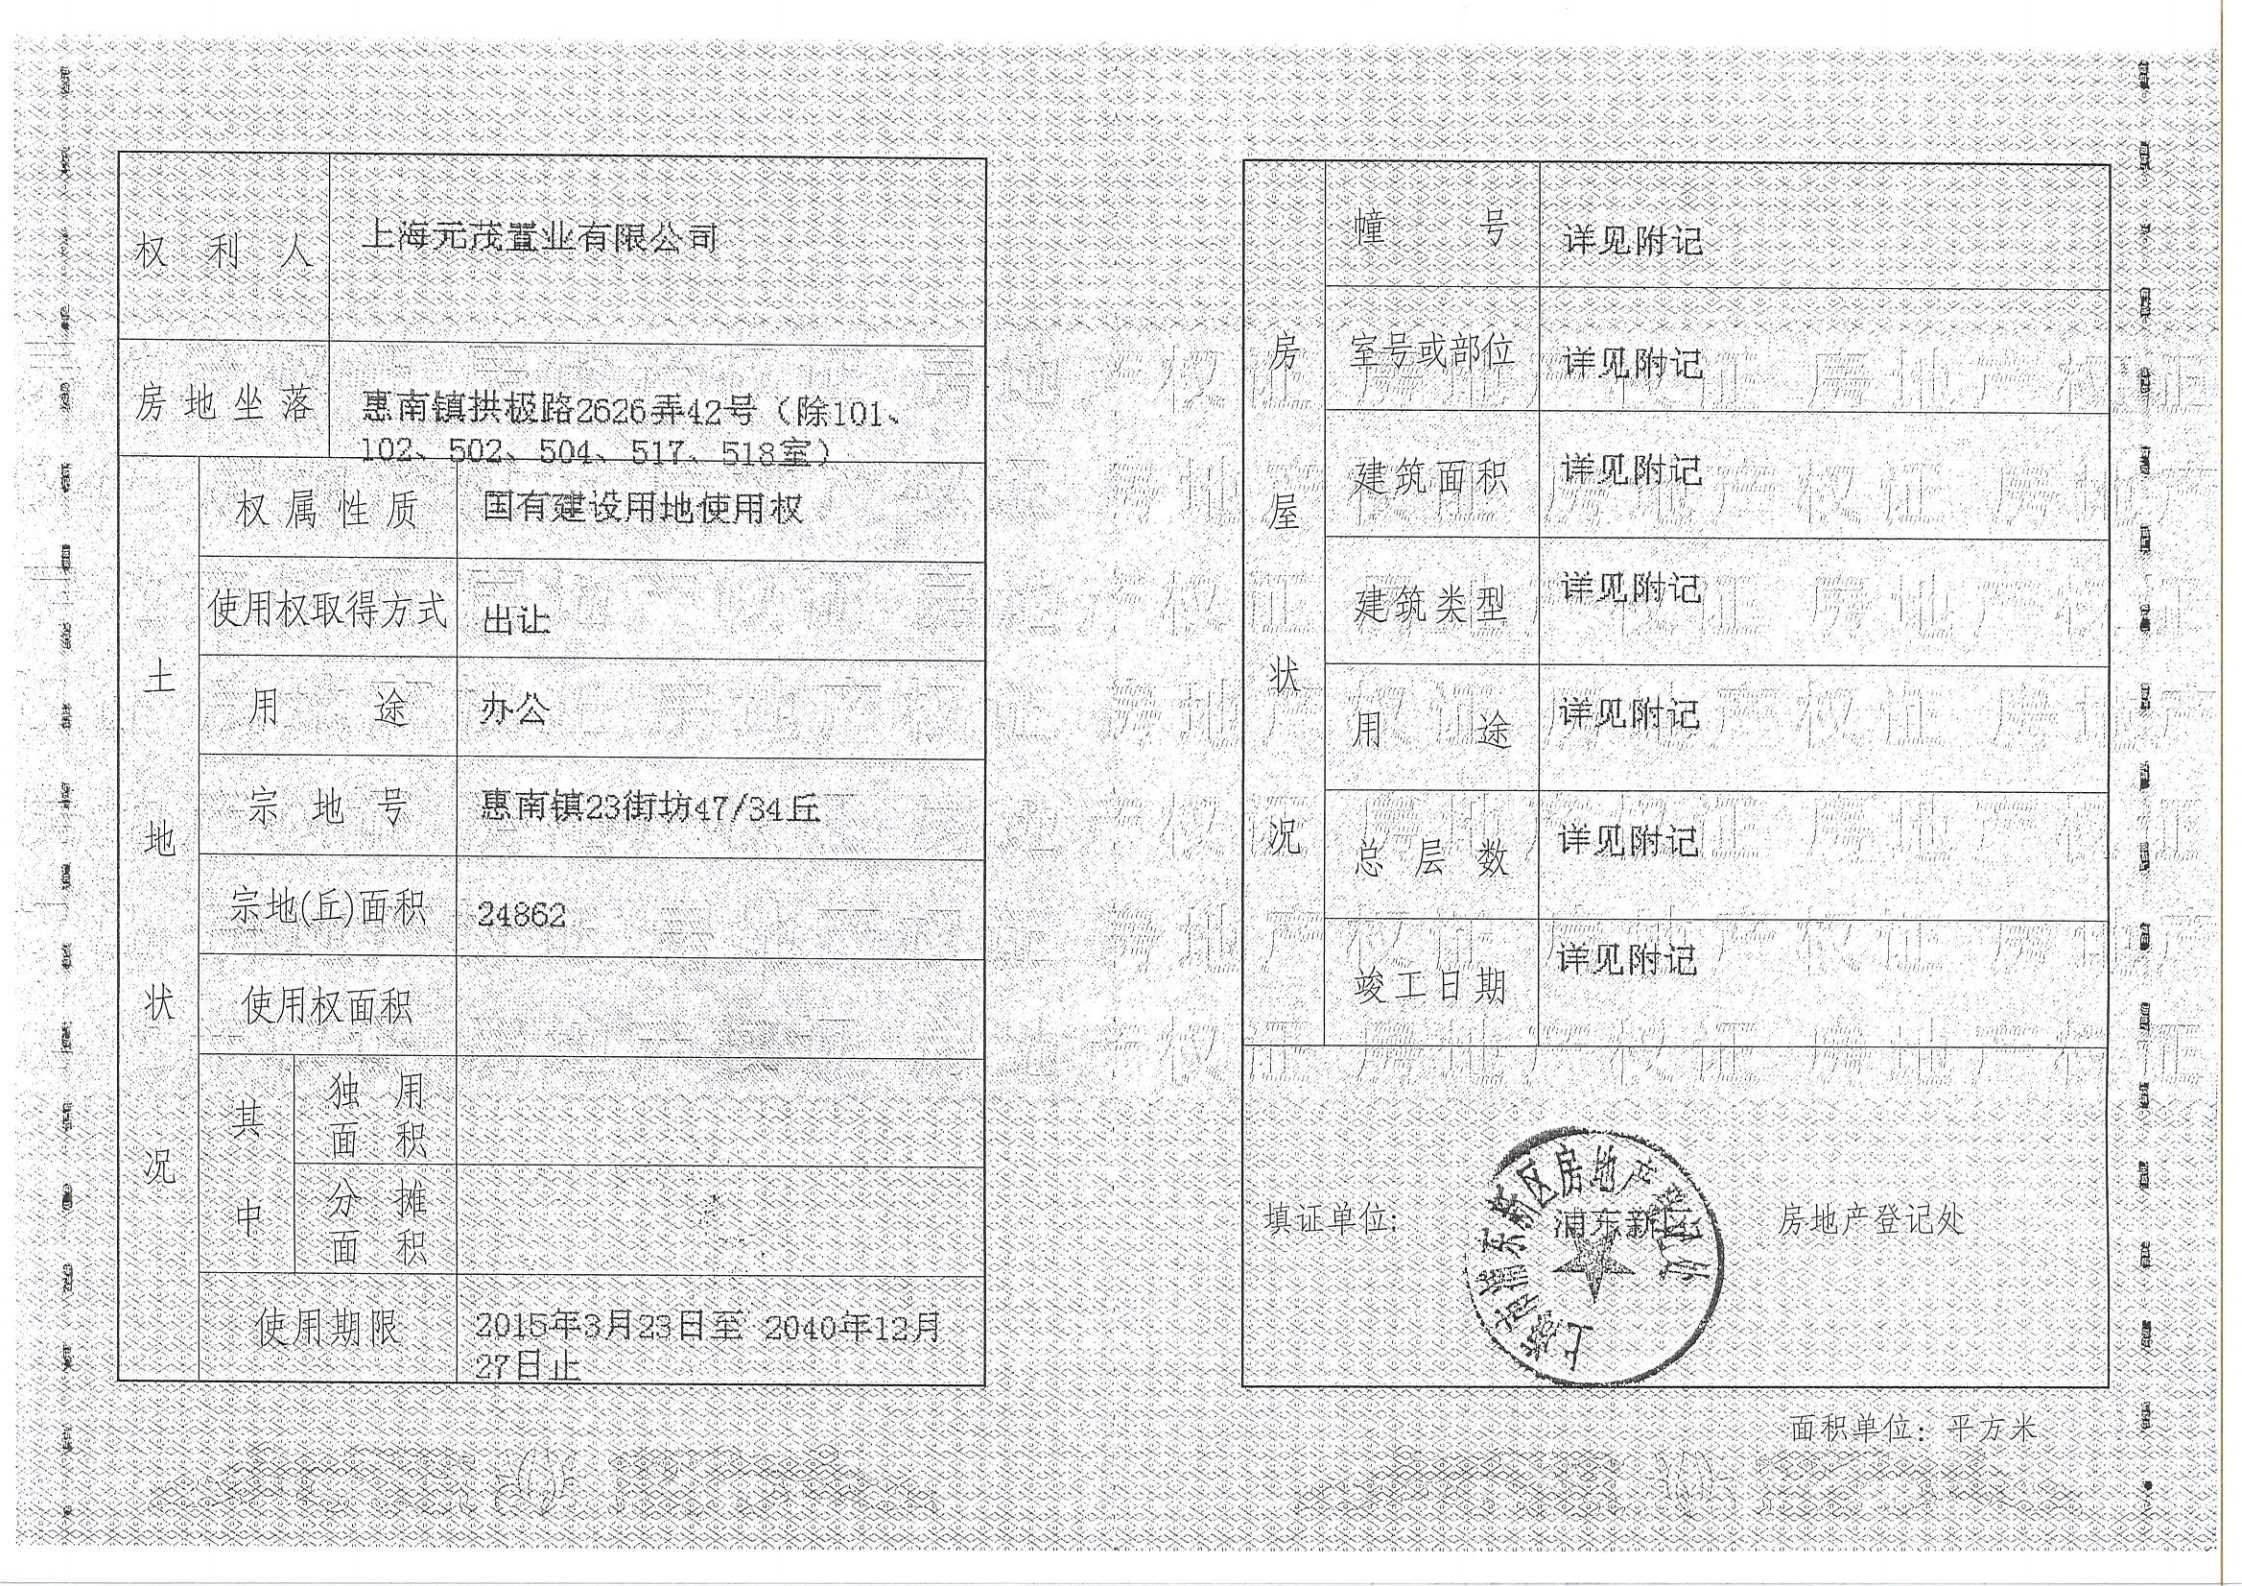 权利人 上海元茂置业有限公司
房地坐落 惠南镇拱极路2626弄42号（除101、
102、502、504、517、518室）
土地状况
权属性质 国有建设用地使用权
使用权取得方式 出让
用途 办公
宗地号 惠南镇23街坊47/34丘
宗地(丘)面积 24862
使用权面积
其中
独用
面积
分摊
面积
使用期限 2015年3月23日至 2040年12月
27日止
房屋状况
幢号 详见附记
室号或部位 详见附记
建筑面积 详见附记
建筑类型 详见附记
用途 详见附记
总层数 详见附记
竣工日期 详见附记
填证单位: 浦东新区 房地产登记处
上海市浦东新区房地产登记处
面积单位：平方米